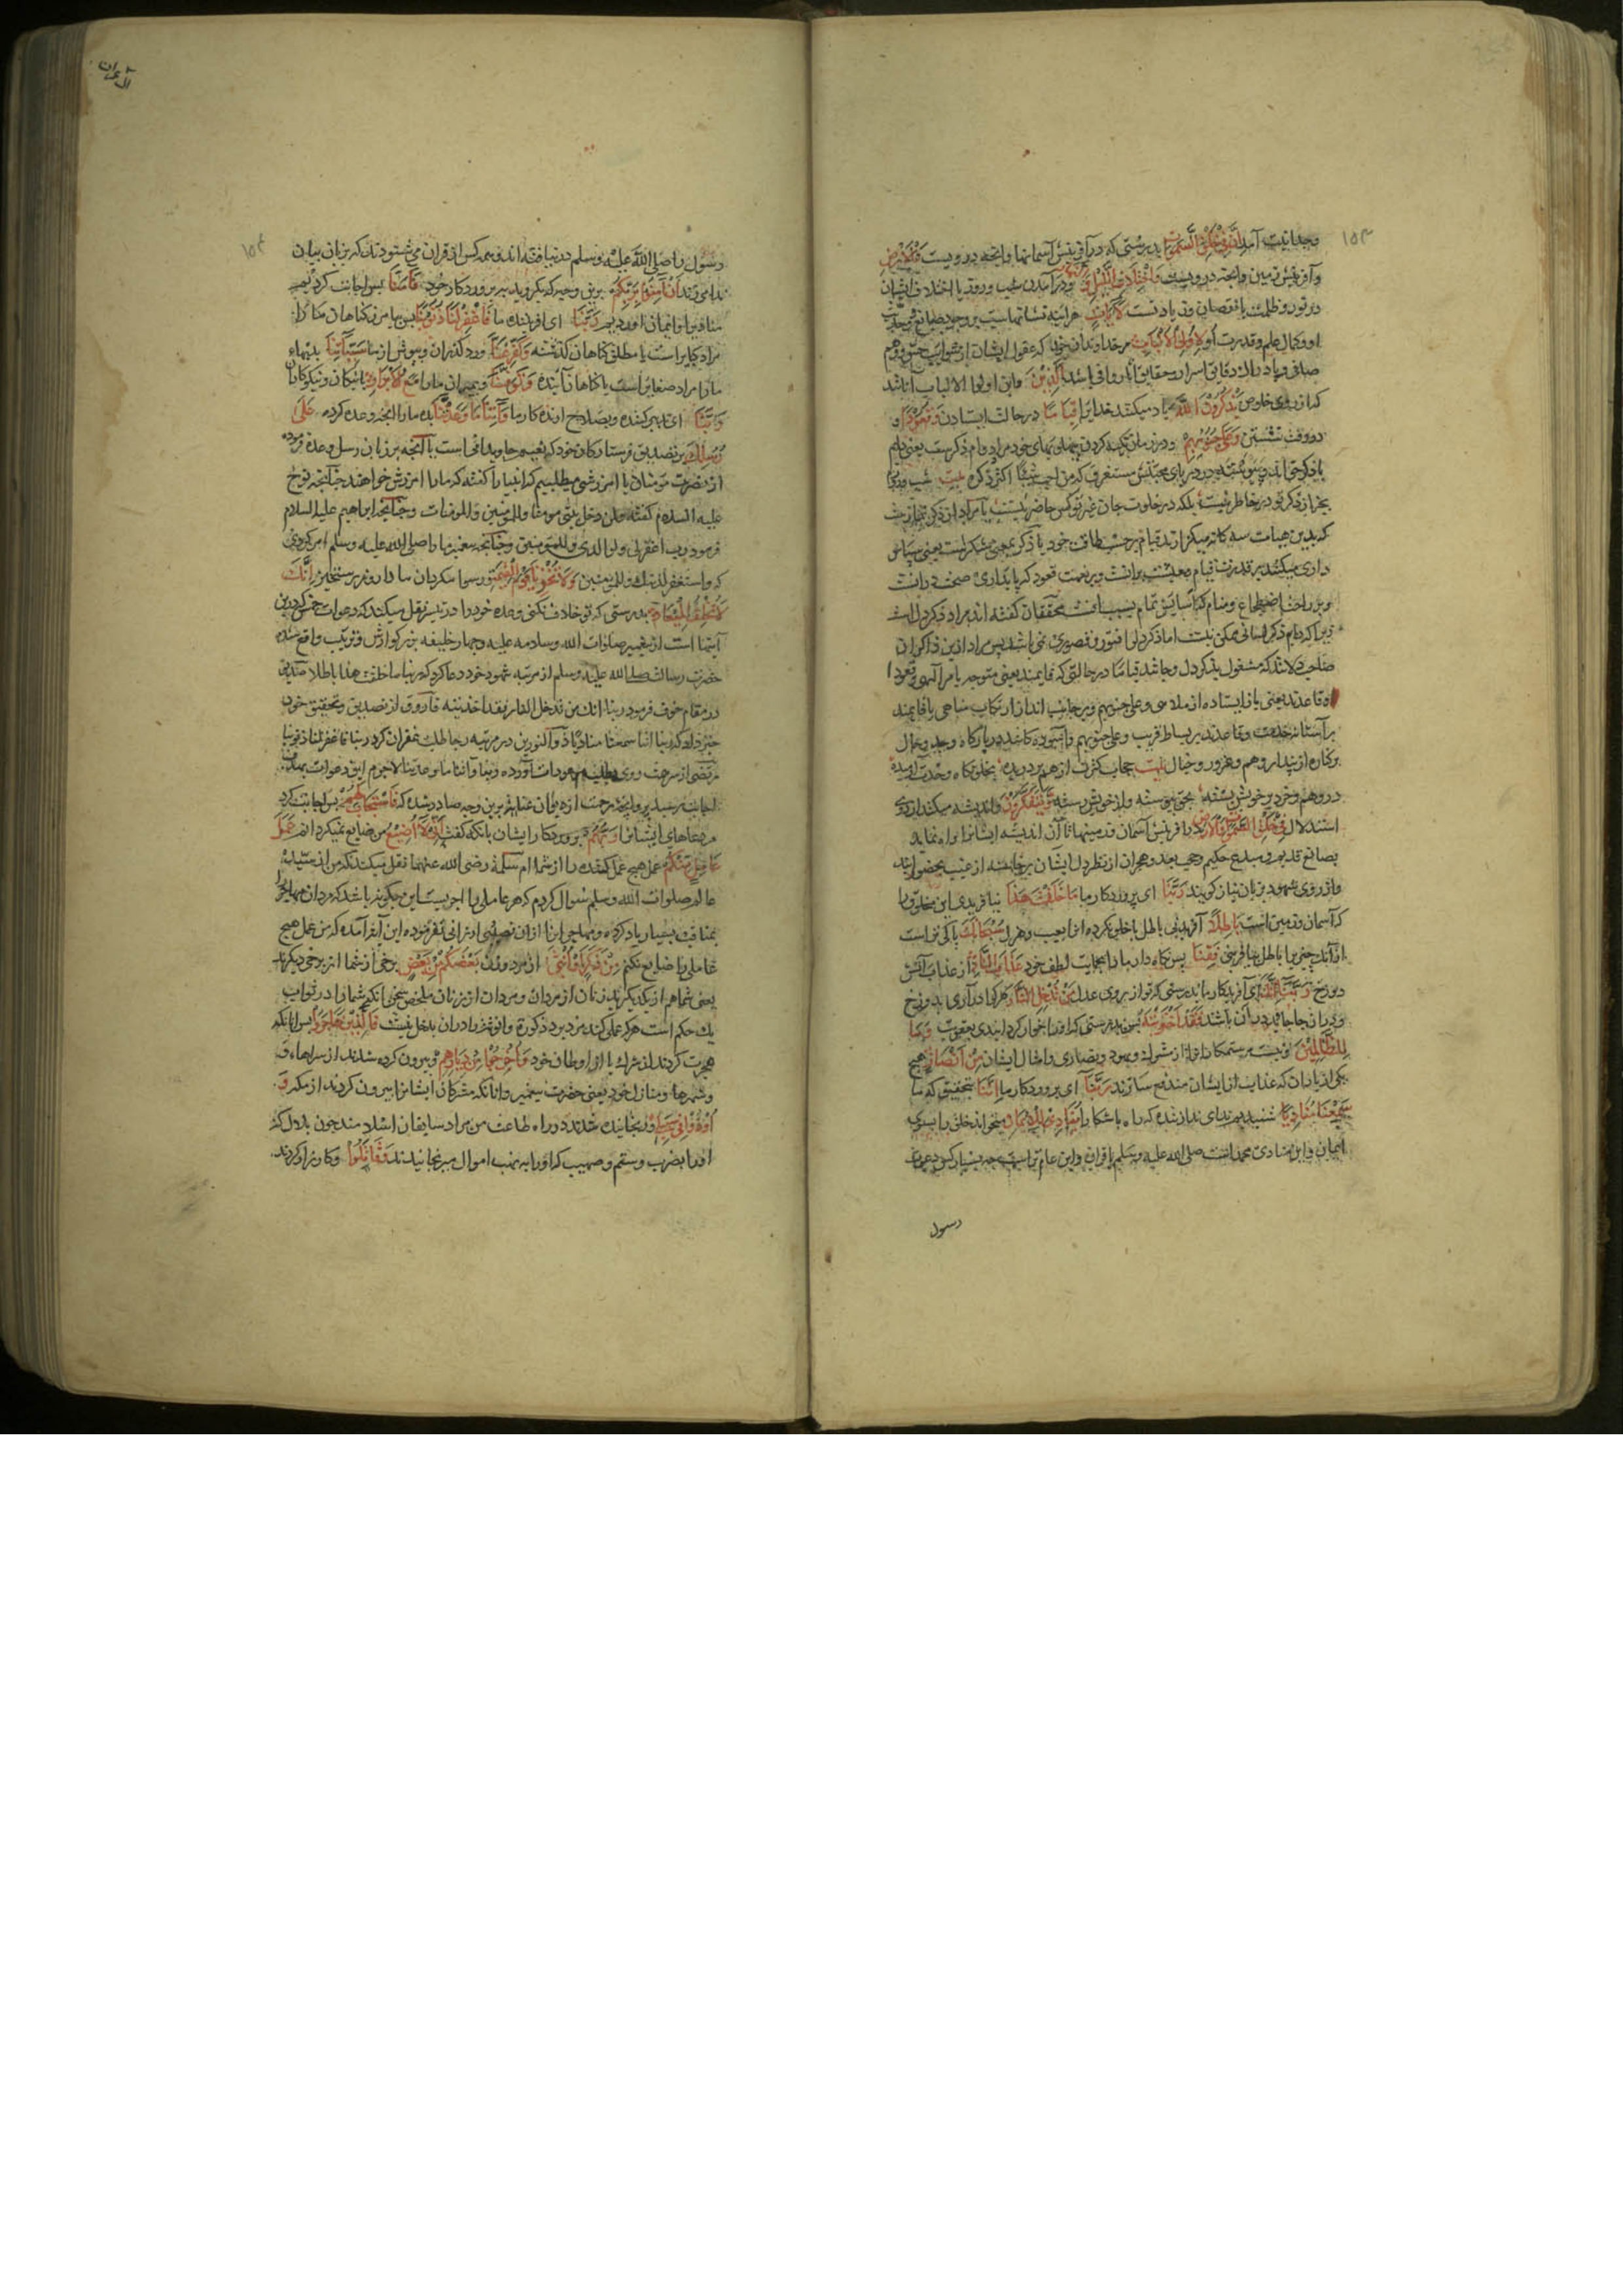 ۱۵۳
وحدانیت آمد اِنَّ فِی خَلقِ السَّمٰوٰتِ بدرستی که در آفرینش آسمانها و آنچه دروست وَالاَرضِ
و آفرینش زمین و آنچه دروست وَاختِلَافِ الَّیلِ وَالنَّهَارِ و در آمدن شب و روز یا اختلاف ایشان
در نور و ظلمت یا نقصان و زیادت لَآیَاتٍ هرآینه نشانهاست بر وجود صانع و وحدت
او و کمال علم و قدرت او لِاُولِی الاَلبَابِ مر خداوندان خرد که عقول ایشان از شوایب حس و وهم
صافی و بادراک دقایق اسرار و حقایق آثار وافی باشد اَلَّذِینَ و این اولوا الالباب آنانند
که از روی خلوص یَذکُرُونَ اللّٰهَ یاد میکنند خدایرا قِیَامًا در حالت ایستادن وَقُعُودًا و
در وقت نشستن وَعَلٰی جُنُوبِهِم و در زمان تکیه کردن بپهلوهای خود مراد دوام ذکرست یعنی دایم
بذکر حق اند و پیوسته در دریای محبتش مستغرق که من احب شیئا اکثر ذکره بیت شب و روز
بجز از ذکر تو در خاطر نیست بلکه در خلوت جان غیر تو کس حاضر نیست یا مراد از ذکر نمازست
که بدین هیات سه گانه میگزارند قیام بر حسب طاقت خود یا ذکر بمعنی شکرست یعنی سپاس
داری میکنند بر قدرت قیام که معیشت برانست و بر نعمت قعود که پایداری صحت درانست
و بر راحت اضطجاع و منام که آسایش تمام بسبب آنست محققان گفته اند مراد ذکر دل است
زیرا که دوام ذکر لسانی ممکن نیست اما ذکر دل را فتور و قصوری نمی باشد پس مراد ازین ذاکران
صاحب دلانند که مشغول بذکر دل و جانند قیاما در حالتی که قایمند یعنی متوجه بامر الهی و قعودا
و قاعدند یعنی باز ایستاده از ملاهی و علی جنوبهم و بر جانب اند از ارتکاب مناهی یا قایمند
بر آستانه خدمت و قاعدند بر بساط قربت و علی جنوبهم و آسوده کانند در بارگاه وجد و حال
بر کناره از پندار و وهم و غرور و خیال بیت حجاب کثرت از هم بر دریده بخلوتگاه وحدت آرمیده
در وهم و خرد بر خویش بسته بحق پیوسته و از خویش رسته وَیَتَفَکَّرُونَ و اندیشه میکنند از روی
استدلال فِی خَلقِ السَّمٰوٰتِ وَالاَرضِ در آفرینش آسمان و زمینها تا آن اندیشه ایشانرا راه نماید
بصانع قدیم و مبدع حکیم و حجب بعد و هجران از نظر دل ایشان برخاسته از غیب بحضور آیند
و از روی شهود بزبان نیاز گویند رَبَّنَا ای پروردگار ما مَا خَلَقتَ هٰذَا نیافریدی این مخلوق را
که آسمان و زمین است بَاطِلًا آفریدنی باطل یا خلق نکرده آنرا بعیب و هزل سُبحَانَکَ پاکی تراست
از آنکه چیزی را باطل بیافرینی فَقِنَا پس نگاه دار ما را بحمایت لطف خود عَذَابَ النَّارِ از عذاب آتش
دوزخ رَبَّنَا اِنَّکَ ای آفریدگار ما بدرستی که تو از روی عدل مَن تُدخِلِ النَّارَ هر کرا در آری بدوزخ
و در آن جا جاوید باشد فَقَد اَخزَیتَهُ پس بدرستی که او را خوار کرده ای بعقوبت وَمَا
لِلظَّالِمِینَ و نیست مر ستمکاران را از مشرک و یهود و نصاری و امثال ایشان مِن اَنصَارٍ هیچ
یکی از یاران که عذاب از ایشان مندفع سازند رَبَّنَا ای پروردگار ما اِنَّنَا بتحقیق که ما
سَمِعنَا مُنَادِیًا شنیدیم ندای ندا زننده که راه باشکارا یُنَادِی لِلاِیمَانِ میخواند خلق را بسوی
ایمان و این منادی محمدست صلی الله علیه وسلم یا قرآن و این عام تراست چه بسیار کس دعوت
رسول
آل عمران
۱۵۴
رسول را صلی الله علیه وسلم در نیافته اند و همه کس از قرآن می شنودند که بزبان بیان
ندا می زند اَن آمِنُوا بِرَبِّکُم برین وجه که بگروید بپروردگار خود فَآمَنَّا پس اجابت کردیم
منادیرا و ایمان آوردیم رَبَّنَا ای آفریننده ما فَاغفِر لَنَا ذُنُوبَنَا پس بیامرز گناهان ما را
مراد کبایر است یا مطلق گناهان گذشته وَکَفِّر عَنَّا و در گذران و بپوش از ما سَیِّئَاتِنَا بدیهاء
ما را مراد صغایر است یا گناهان آینده وَتَوَفَّنَا و بمیران ما را مَعَ الاَبرَارِ با نیکان و نیکوکاران
رَبَّنَا ای تربیت کننده و بصلاح آرنده کار ما وَآتِنَا مَا وَعَدتَّنَا بده ما را آنچه وعده کرده عَلٰی
رُسُلِکَ بر تصدیق فرستادگان خود که نعیم جاودانی است یا آنچه بر زبان رسل وعده فرموده
از نصرت مومنان یا امرزشی میطلبیم که انبیا را گفته که ما را امرزش خواهند چنانچه نوح
علیه السلام گفته ولمن دخل بیتی مومنا وللمومنین والمومنات و چنانچه ابراهیم علیه السلام
فرمود رب اغفرلی ولوالدی وللمومنین و چنانچه پیغمبر ما را صلی الله علیه وسلم امر کردی
که واستغفر لذنبک وللمومنین وَلَا تُخزِنَا یَومَ القِیٰمَةِ و رسوا مگردان ما را روز رستخیز اِنَّکَ
لَا تُخلِفُ المِیعَادَ بدرستی که تو خلاف نکنی وعده خود را در تیسیر نقل میکند که دعوات خمس که درین
آیتها است از پیغمبر صلوات الله وسلامه علیه و چهار خلیفه بزرگوارش بترتیب واقع شده
حضرت رسالت صلی الله علیه وسلم از مرتبه شهود خود دعا کرد که ربنا ما خلقت هذا باطلا صدیق
در مقام خوف فرمود ربنا انک من تدخل النار فقد اخزیته فاروق از تصدیق و تحقیق خود
خبر داد که ربنا اننا سمعنا منادیا ذو النورین در مرتبه رجا طلب غفران کرد ربنا فاغفر لنا ذنوبنا
مرتضی از سر حب روی بطلب موعودات آورده ربنا و آتنا ما وعدتنا لاجرم این دعوات
اجابت رسید و رایحه رحمت ازهار عنایت برین وجه صادر شده که فَاستَجَابَ لَهُم پس اجابت کرد
مر دعاهای ایشانرا رَبُّهُم پروردگار ایشان بآنکه گفت اَنِّی لَا اُضِیعُ من ضایع نمیگردانم عَمَلَ
عَامِلٍ مِنکُم عمل هیچ عمل کننده را از شما ام سلمه رضی الله عنها نقل میکند که من از سید
عالم صلوات الله وسلم سوال کردم که هر عاملی را اجریست این چگونه باشد که مردان مهاجر را
بمناقب بسیار یاد کرده و مهاجرات را از آن نصیبی ارزانی نفرموده این آیه آمد که من عمل هیچ
عاملی را ضایع نکنم مِن ذَکَرٍ اَو اُنثٰی از مرد و زن بَعضُکُم مِن بَعضٍ برخی از شما از برخی دیگرند
یعنی شما هم از یکدیگرید زنان از مردان و مردان از زنان ملخص سخن آنکه شما را در ثواب
یک حکم است هر که عملی کند مزد برد ذکورة و انوثت را در آن مدخل نیست فَالَّذِینَ هَاجَرُوا پس آنانکه
هجرت کردند از شرک یا از اوطان خود وَاُخرِجُوا مِن دِیَارِهِم و بیرون کرده شدند از سراهاء و
و شهرها و منازل خود یعنی حضرت پیغمبر و آنانکه مشرکان ایشانرا بیرون کردند از مکه وَ
اُوذُوا فِی سَبِیلِی و رنجانیده شدند در راه طاعت من مراد سابقان اسلامند چون بلال که
او را بضرب و ستم و صهیب که او را بنهب اموال میرنجانیدند وَقَاتَلُوا و کارزار کردند